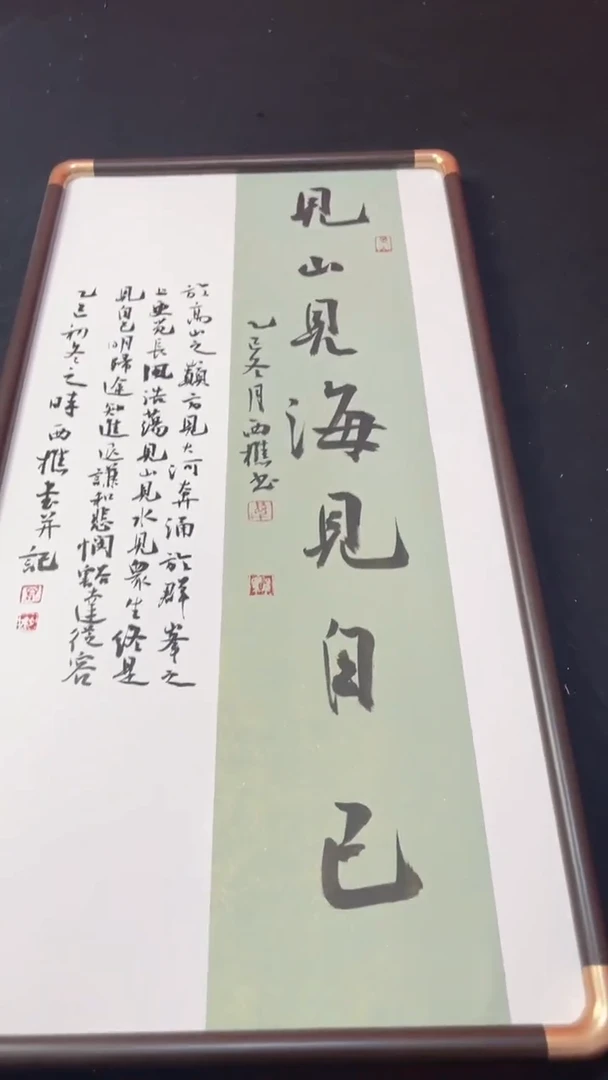 見山見海見自己
乙巳冬月西樵书
於高山之巔方見大河奔涌於群峯之
上更覺長風浩蕩見山見水見眾生終是
見自己明歸途知進退謙和悲憫豁達從容
乙巳初冬之時西樵書并記